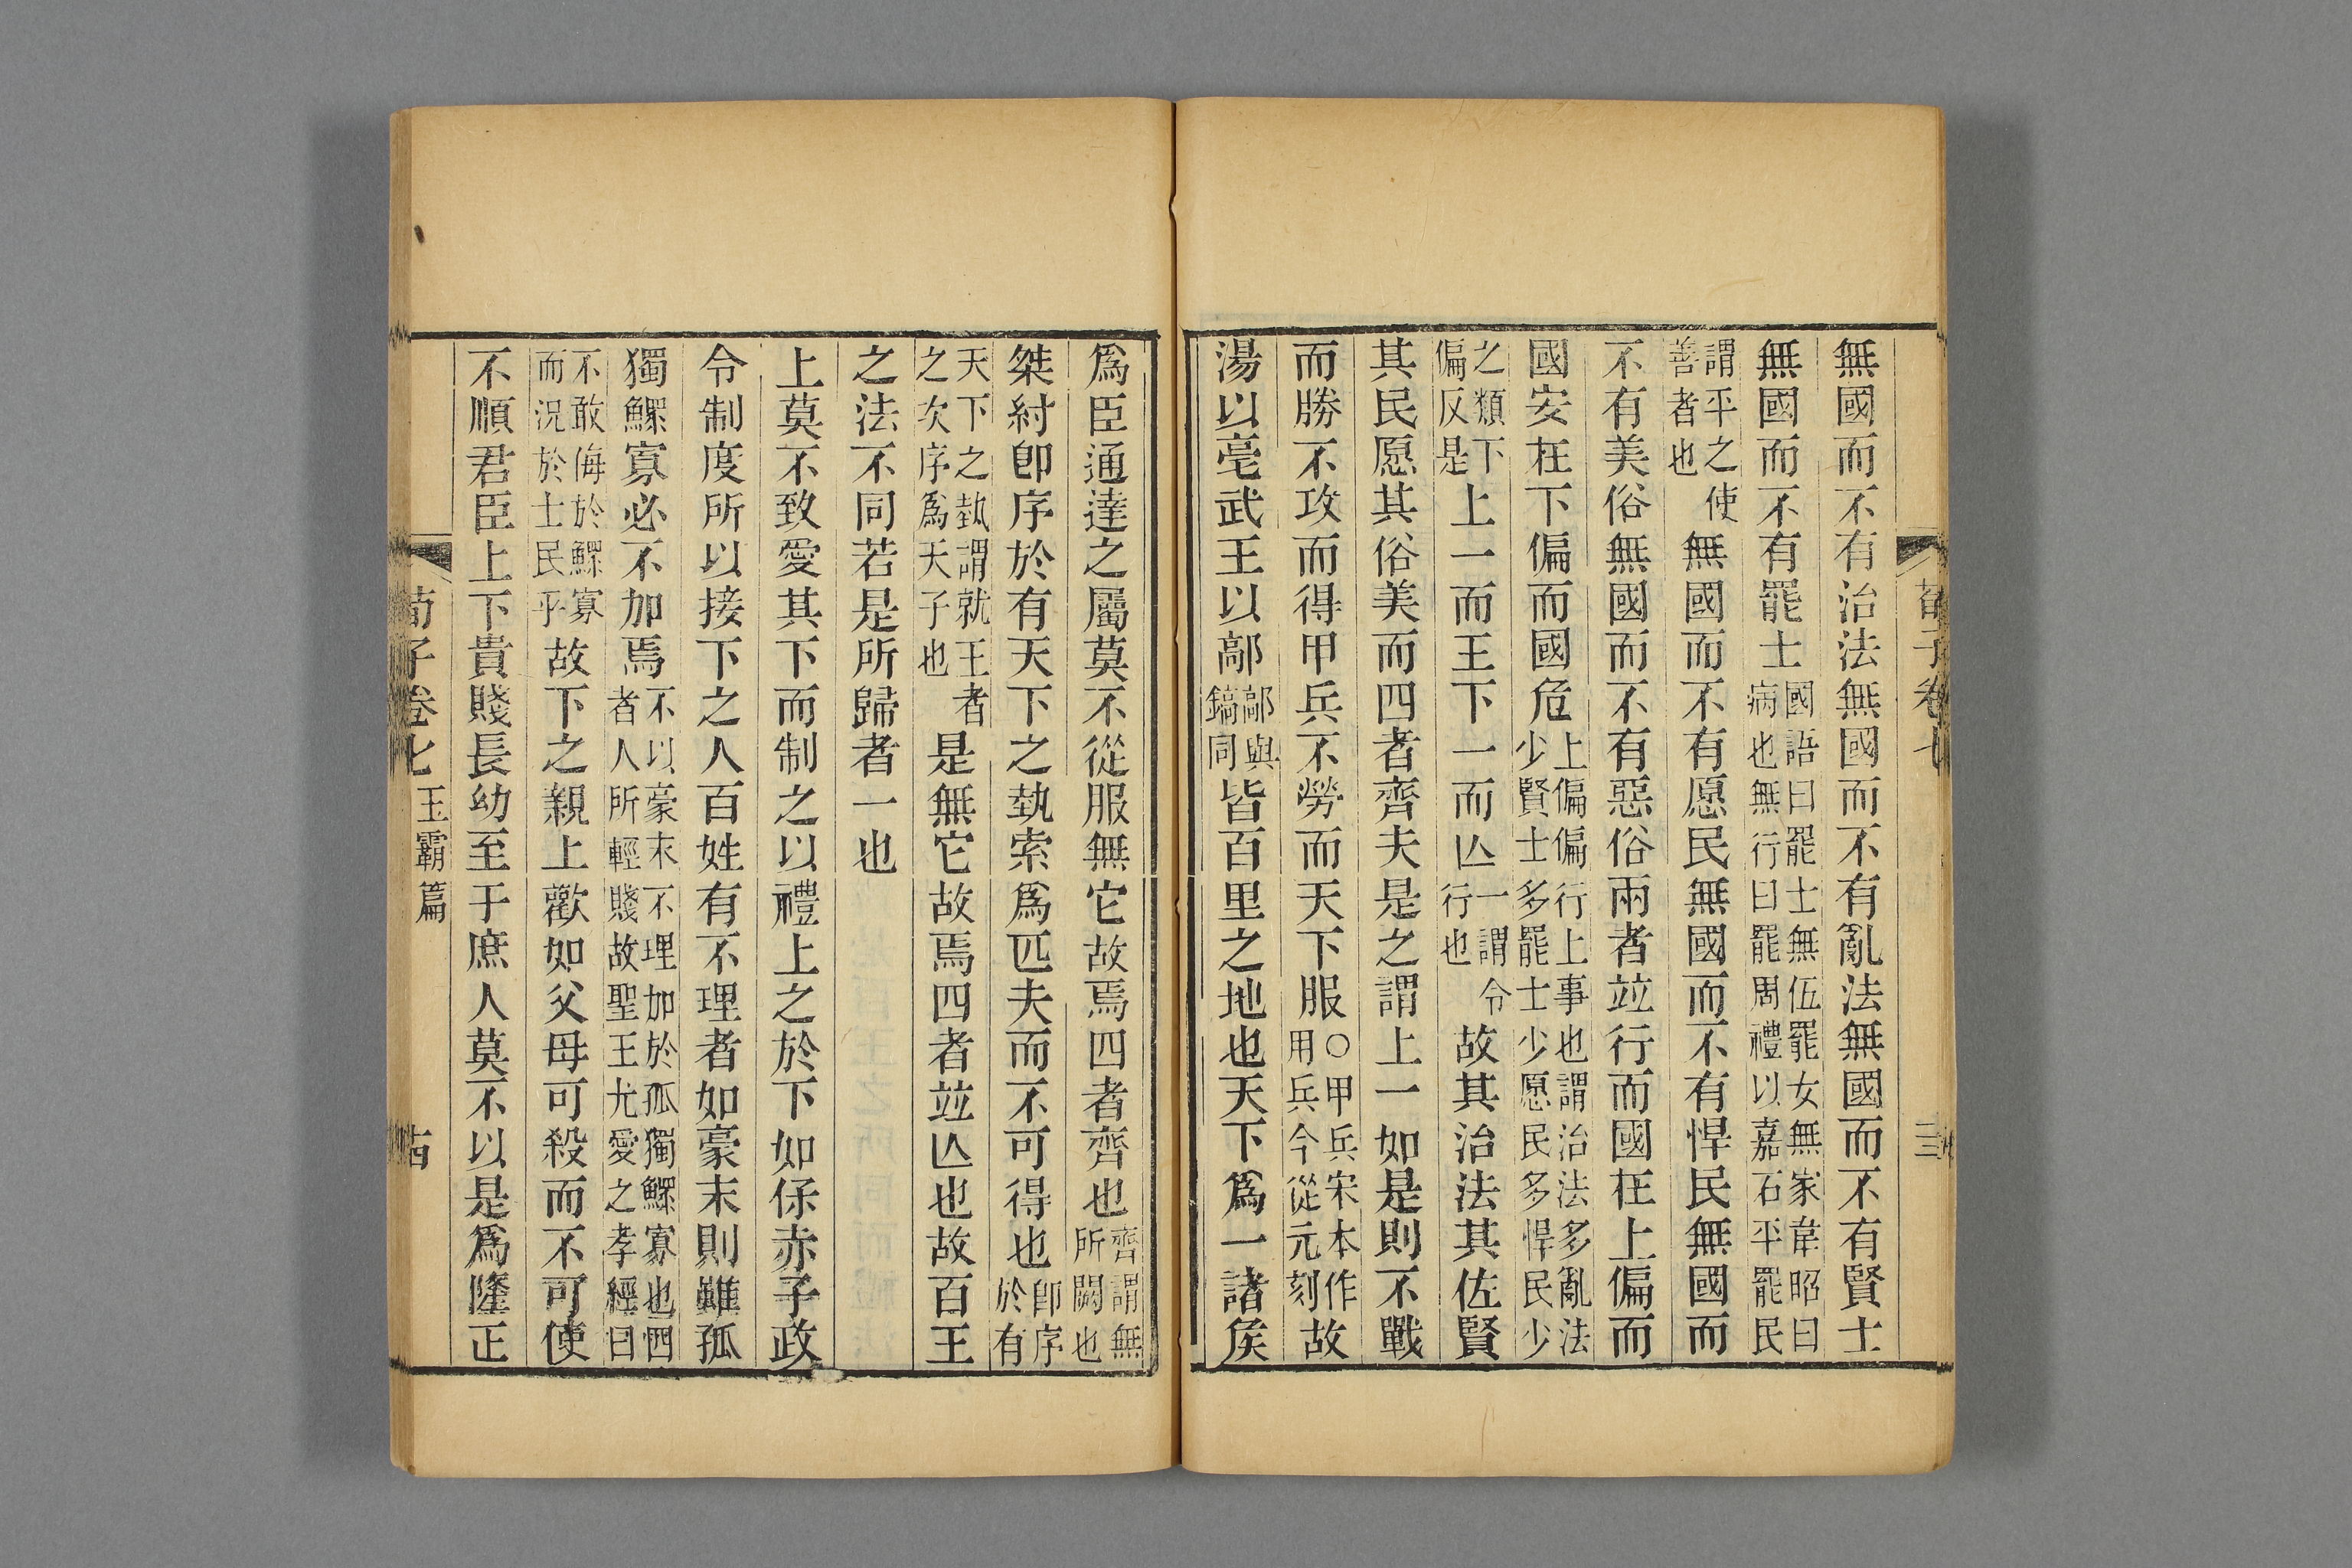 無國而不有治法無國而不有亂法無國而不有賢士
無國而不有罷士國語曰罷士無伍罷女無家韋昭曰病也無行曰罷周禮以嘉石平罷民
謂平之使善者也無國而不有愿民無國而不有悍民無國而
不有美俗無國而不有惡俗兩者竝行而國在上偏而
國安在下偏而國危上偏偏行上事也謂治法多亂法少賢士多罷士少愿民多悍民少
之類下偏反是上一而王下一而亾一謂令行也故其治法其佐賢
其民愿其俗美而四者齊夫是之謂上一如是則不戰
而勝不攻而得甲兵不勞而天下服○甲兵宋本作用兵今從元刻故
湯以亳武王以鄗鄗與鎬同皆百里之地也天下爲一諸矦
荀子卷七
三
爲臣通達之屬莫不從服無它故焉四者齊也齊謂無所闕也
桀紂卽序於有天下之埶索爲匹夫而不可得也卽序於有
天下之埶謂就王者之次序爲天子也是無它故焉四者竝亾也故百王
之法不同若是所歸者一也
上莫不致愛其下而制之以禮上之於下如保赤子政
令制度所以接下之人百姓有不理者如豪末則雖孤
獨鰥寡必不加焉不以豪末不理加於孤獨鰥寡也四者人所輕賤故聖王尤愛之孝經曰
不敢侮於鰥寡而況於士民乎故下之親上歡如父母可殺而不可使
不順君臣上下貴賤長幼至于庶人莫不以是爲隆正
荀子卷七王霸篇